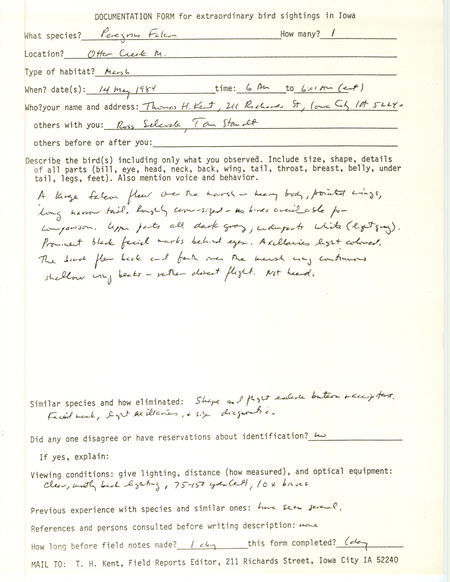 DOCUMENTATION FORM for extraordinary bird sightings in Iowa
What species? Peregrine Falcon How many? 1
Location? Otter Creek M.
Type of habitat? Marsh
When? date(s): 14 May 1984 time: 6 AM to 6:01 AM (est)
Who? your name and address: Thomas H. Kent, 211 Richards St, Iowa City IA 52240
others with you: Ross Tom
others before or after you:
Describe the bird(s) including only what you observed. Include size, shape, details
of all parts (bill, eye, head, neck, back, wing, tail, throat, breast, belly, under
tail, legs, feet). Also mention voice and behavior.
A large falcon flew over the marsh - heavy body, pointed wings,
long narrow tail, roughly crow-sized - no birds available for
comparison. Upper parts all dark gray, underparts white (light gray).
Prominent black facial marks behind eyes. Axillaries light colored.
The bird flew back and forth over the marsh using continuous
shallow wing beats - rather direct flight. Not heard.
Similar species and how eliminated: Shape and flight exclude buteos accipiters.
Facial mark, light axillaries, + size diagnostic.
Did any one disagree or have reservations about identification? no
If yes, explain:
Viewing conditions: give lighting, distance (how measured), and optical equipment:
Clear, mostly back lighting, 75-150 yds (est), 10x binos
Previous experience with species and similar ones: have seen several.
References and persons consulted before writing description: none
How long before field notes made? 1 day this form completed? 1 day
MAIL TO: T. H. Kent, Field Reports Editor, 211 Richards Street, Iowa City IA 52240